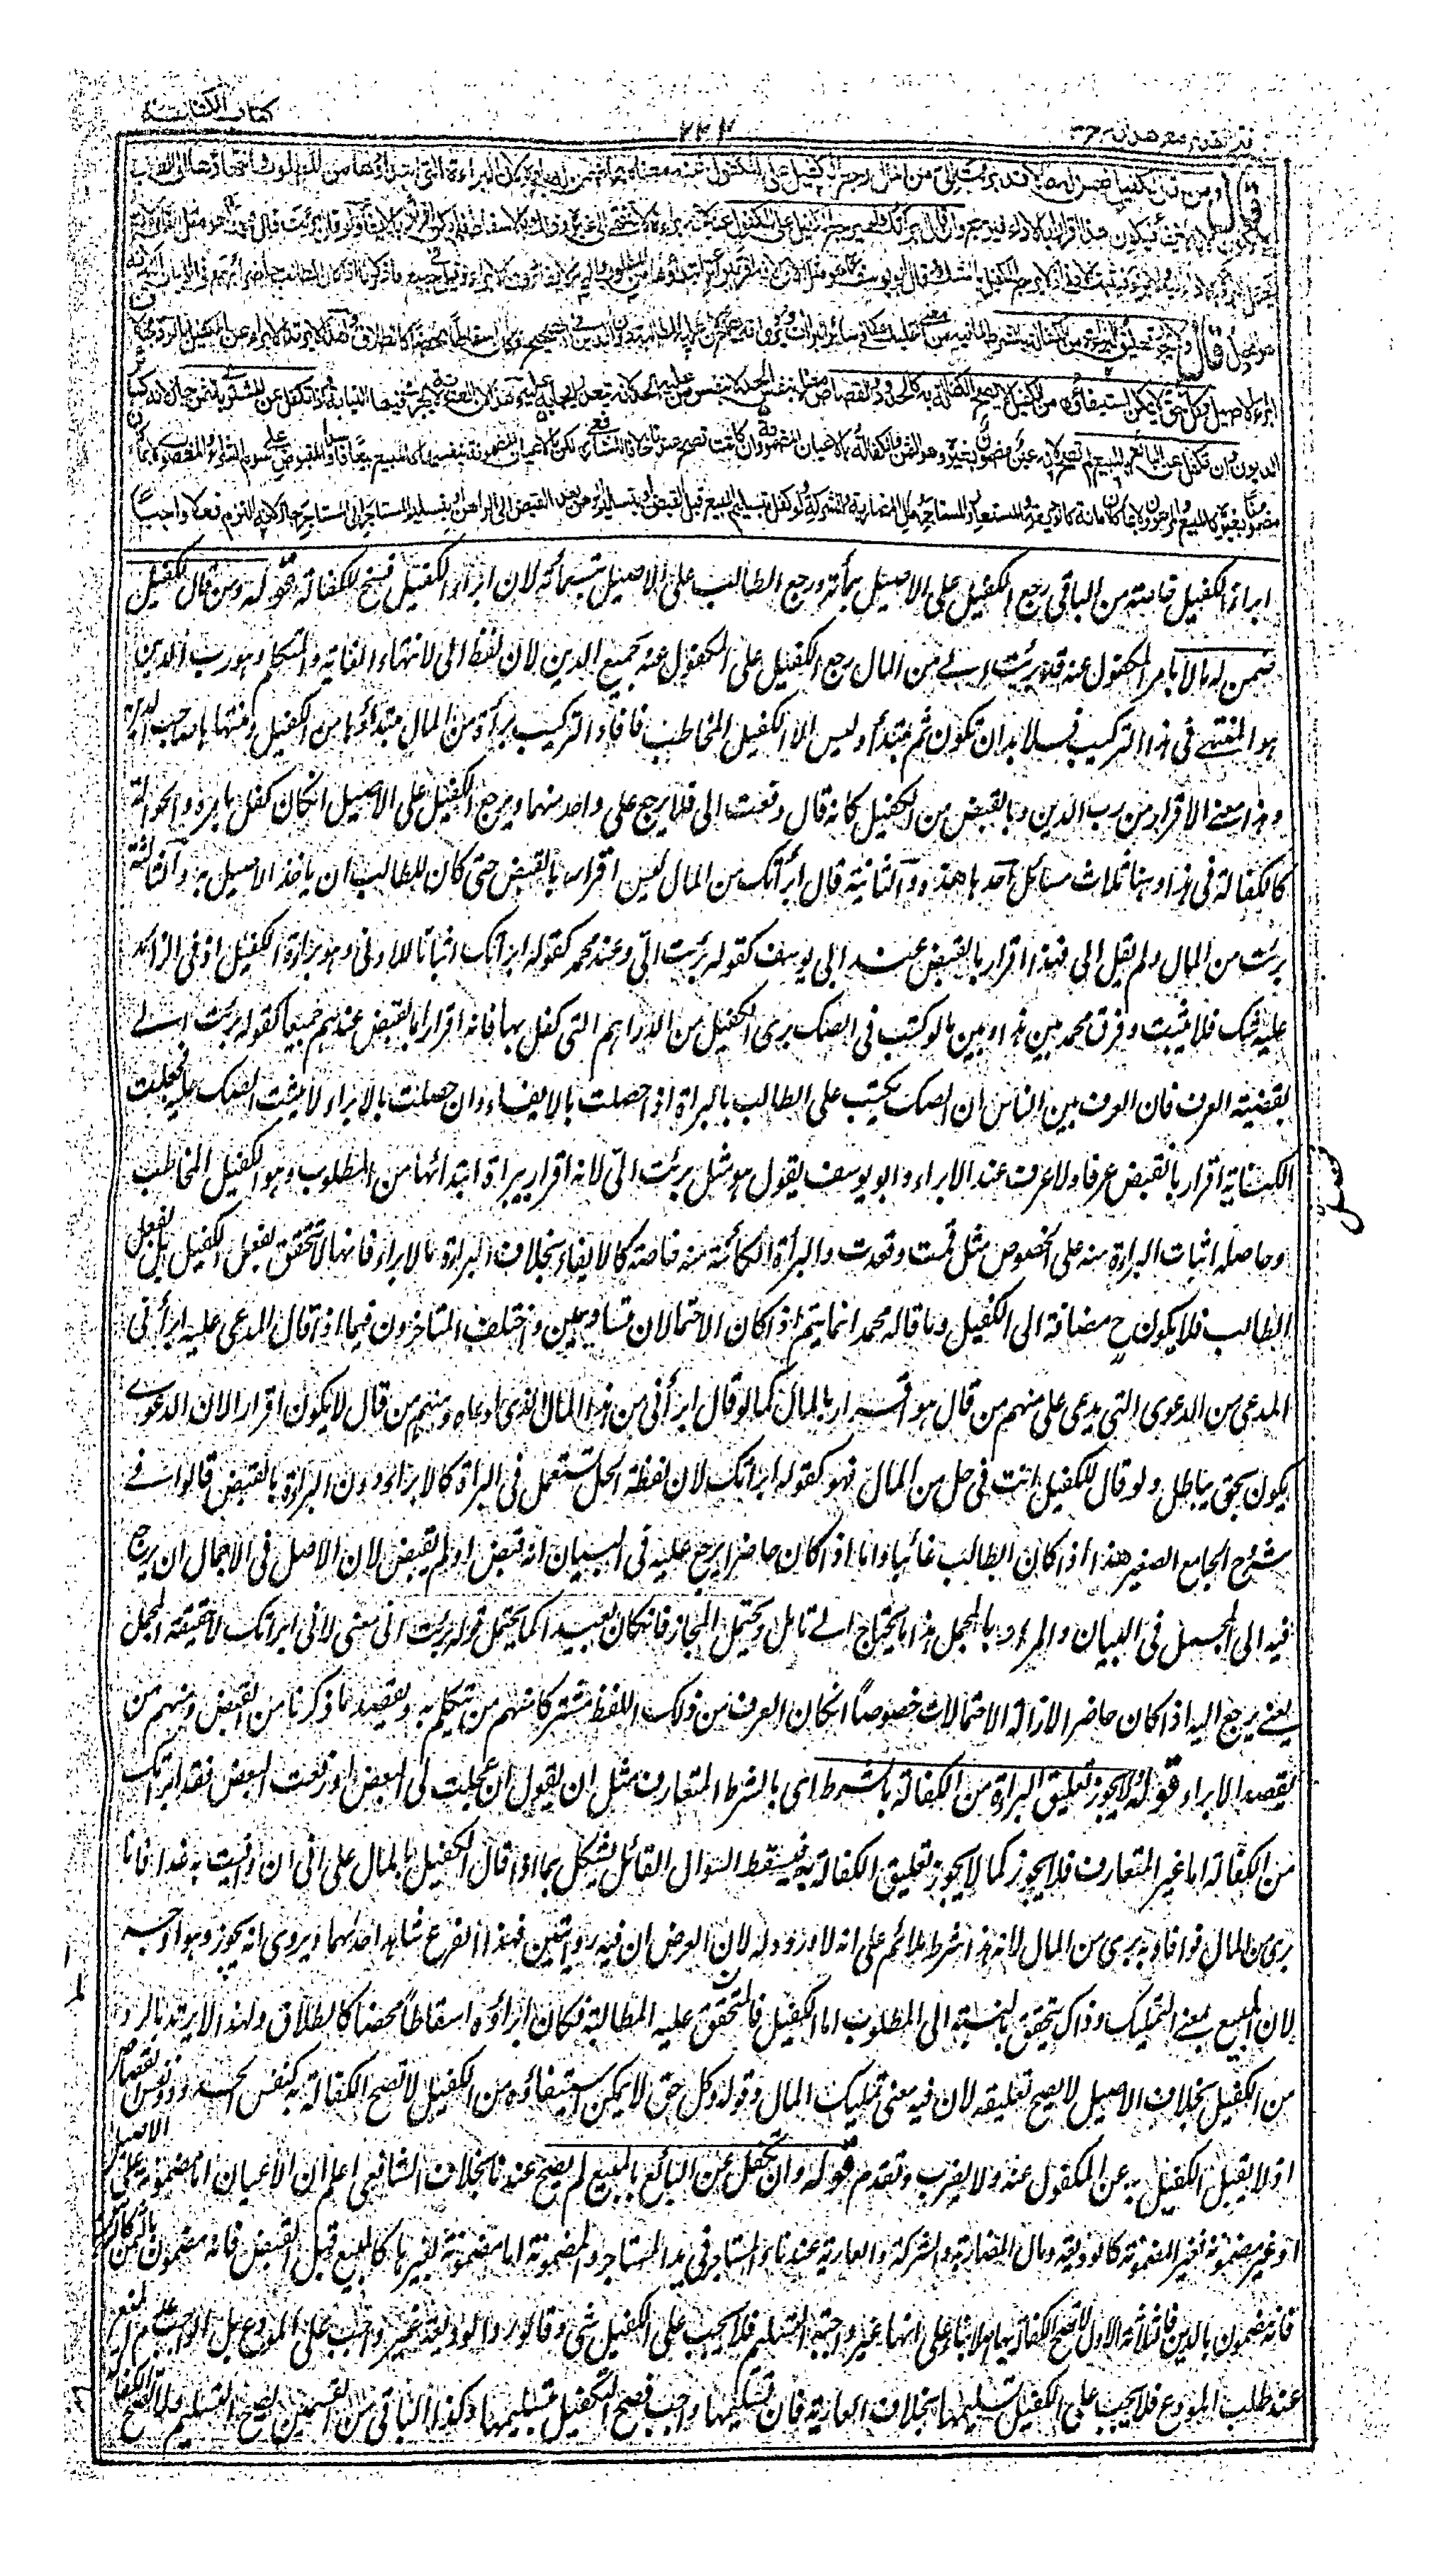 فتح القدير مع هداية ج ٣
٢٣٢
كتاب الكفالة
قال ومن قال لكفيل ضمن له مالا قد برئت إلي من المال رجع الكفيل على المكفول عنه معناه بما ضمن له بأمره لأن البراءة التي ابتداؤها من المطلوب وانتهاؤها إلى الطالب
لا يكون إلا بالإيفاء فيكون هذا إقرارا بالأداء فيرجع وإن قال أبرأتك لم يرجع الكفيل على المكفول عنه لأنه براءة لا تنتهي إلى غيره وذلك بالإسقاط فلم يكن إقرارا بالإيفاء ولو قال برئت قال محمد هو مثل الثاني لأنه
يحتمل البراءة بالأداء إليه والإبراء فيثبت الأدنى إذ لا يرجع الكفيل بالشك وقال أبو يوسف هو مثل الأول لأنه أقر ببراءة ابتداؤها من المطلوب وإليه الإيفاء دون الإبراء وقيل في جميع ما ذكرنا إذا كان الطالب حاضرا يرجع في البيان إليه لأنه
هو المجمل قال ولا يجوز تعليق البراءة من الكفالة بالشرط لما فيه من معنى التمليك كما في سائر البراءات ويروى أنه يصح لأن عليه المطالبة دون الدين في الصحيح فكان إسقاطا محضا كالطلاق ولهذا لا يرتد الإبراء عن الكفيل بالرد بخلاف
إبراء الأصيل وكل حق لا يمكن استيفاؤه من الكفيل لا يصح الكفالة به كالحدود والقصاص معناه بنفس الحد لا بنفس من عليه الحد لأنه يتعذر إيجابه عليه وهذا لأن العقوبة لا يجري فيها النيابة وإذا تكفل عن المشتري بالثمن جاز لأنه دين كسائر
الديون وإن تكفل عن البائع بالمبيع لم تصح لأنه عين مضمون بغيره وهو الثمن والكفالة بالأعيان المضمونة وإن كانت تصح عندنا خلافا للشافعي لكن بالأعيان المضمونة بنفسها كالمبيع بيعا فاسدا والمقبوض على سوم الشراء والمغصوب لا بما كان
مضمونا بغيره كالمبيع والمرهون ولا بما كان أمانة كالوديعة والمستعار والمستأجر ومال المضاربة والشركة ولو كفل بتسليم المبيع قبل القبض أو بتسليم الرهن بعد القبض إلى الراهن أو بتسليم المستأجر إلى المستأجر جاز لأنه التزم فعلا واجبا
ابراء الكفيل خاصته من الباقي رجع الكفيل على الاصيل بمأته ورجع الطالب على الاصيل بتسعمائة لان ابراء الكفيل فسخ للكفالة قوله ومن قال لكفيل
ضمن له مالا بامر المكفول عنه قد برئت الے من المال رجع الكفيل على المكفول عنه بجميع الدين لان لفظ الى لانتهاء الغاية والمتكلم وهو رب الدين
هو المنتهے فى هذا التركيب فلا بد ان تكون ثم مبتدأ وليس الا الكفيل المخاطب فافاد التركيب براءة من المال مبتدأها من الكفيل ومنتهاها صاحب الدين
وهذا معنے الاقرار من رب الدين وبالقبض من الكفيل كانه قال دفعت الى فلا يرجع على واحد منهما ويرجع الكفيل على الاصيل انكان كفل بامره والحوالة
كالكفالة فى هذا وههنا ثلاث مسائل احدها هذه والثانية قال ابرأتك من المال ليس اقرارا بالقبض حتى كان للطالب ان ياخذ الاصيل به والثالثة
برئت من المال ولم يقل الى فهذا اقرار بالقبض عند ابى يوسف كقوله برئت الى وعند محمد كقوله ابرأتك اثباتا للادنى وهو براءة الكفيل اذ فى الزائد
عليه شك فلا يثبت وفرق محمد بين هذا وبين ما لو كتب فى الصك برى الكفيل من الدراهم التى كفل بها فانه اقرار بالقبض عندهم جميعا كقوله برئت الے
بقضية العرف فان العرف بين الناس ان الصك يكتب على الطالب بالبراة اذا حصلت بالايفاء وان حصلت بالابراء لا يثبت الصك عليه فجعلت
الكناية اقرار بالقبض عرفا ولا عرف عند الابراء وابو يوسف يقول هو مثل برئت الى لانه اقرار ببراة ابتدائها من المطلوب وهو الكفيل المخاطب
وحاصله اثبات البراءة منه على الخصوص مثل قمت وقعدت والبراة الكائنة منه خاصة كالايفاء بخلاف البراءة بالابراء فانها لا تتحقق بفعل الكفيل بل بفعل
الطالب فلا يكون ح مضافة الى الكفيل وما قاله محمد انما يتم اذا كان الاحتمالان متساويين واختلف المتاخرون فيما اذا قال المدعى عليه ابرأنى
المدعى من الدعوى التى يدعى على منهم من قال هو اقرار بالمال كما لو قال ابرأنى من هذا المال الذى ادعاه ومنهم من قال لا يكون اقرار الان الدعوے
يكون بحق بباطل ولو قال للكفيل انت فى حل من المال فهو كقوله ابرأتك لان لفظة الحل تستعمل فى البراة كالابراء دون البراءة بالقبض قالوا فے
شروح الجامع الصغير هذا اذا كان الطالب غائبا واما اذا كان حاضرا يرجع عليه فى البيان انه قبض او لم يقبض لان الاصل فى الاجمال ان يرجع
فيه الى المجمل فى البيان والمراد بالمجمل هذا ما يحتاج الے تامل ويحتمل المجاز فانه كان بعيدا كما يحتمل قوله برئت انى معنى لانى ابرأتك لا حقيقة المجمل
يعنے يرجع اليه اذا كان حاضرا لازالة الاحتمالات خصوصاً انكان العرف من ذلك اللفظ مشتركا منهم من يتكلم به ويقصد ما ذكرنا من القبض ومنهم من
يقصد الابراء قوله لا يجوز تعليق البراة من الكفالة بالشرط اى بالشرط المتعارف مثل ان يقول ان عجلت لى البعض او دفعت البعض فقد ابرأتك
من الكفالة اما غير المتعارف فلا يجوز كما لا يجوز تعليق الكفالة به فيسقط السوال القائل يشكل بما اذا قال الكفيل بالمال على انى ان وافيت به غدا فانا
برى من المال فوافاه به برى من المال لانه هذا شرط ملائم على انه لا ورود له لان الغرض ان فيه روايتين فهذا الفرع شاهد احدهما ويروى انه يجوز وهو اوجه
لان المبيع بمعنے التمليك وذاك يتحقق بالنسبة الى المطلوب اما الكفيل فالمتحقق عليه المطالبة فكان ابراؤه اسقاطاً محضا كالطلاق ولهذا لا يرتد بالرد
من الكفيل بخلاف الاصيل لا يصح تعليقه لان فيه معنى تمليك المال وقوله وكل حق لا يمكن استيفاؤه من الكفيل لا تصح الكفالة به كنفس الحدود ونفس القصاص
اذ لا يقبل الكفيل به عن المكفول عنه ولا يضرب وتقدم قوله وان تكفل عن البائع بالمبيع لم يصح عندنا بخلاف الشافعى اعلم ان الاعيان اما مضمونة على الاصيل
او غير مضمونة فغير المضمونة كالوديعة ومال المضاربة والشركة والعارية عندنا والمستاجر فى يد المستاجر والمضمونة اما مضمونة بغيرها كالمبيع قبل القبض فانه مضمون بالثمن كالرهن
فانه مضمون بالدين فالثلاثة الاول لا تصح الكفالة بها اصلا بناء على انها غير واجبة التسليم فلا يجب على الكفيل شى وقالوا رد الوديعة غير واجب على المودع بل الواجب عدم المنع
عند طلب المودع فلا يجب على الكفيل تسليمها بخلاف العارية فان تسليمها واجب فصح التكفيل بتسليمها وكذا الباقى من القسمين يصح التسليم فلا تصح الكفالة